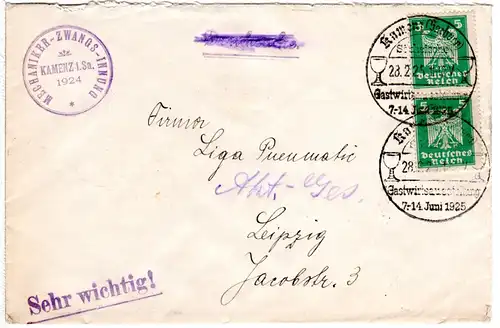 MECHANIKER-ZWANGS-INNUNG
KAMENZ i. Sa.
1924
Kamenz (Sachsen)
28.2.25
Gastwirtsausstellung
7.-14. Juni 1925
5 5
Deutsches
Reich
5 5
Deutsches
Reich
Gastwirtsausstellung
7.-14. Juni 1925
Firma
Liga Pneumatic
Akt.-Ges.
Leipzig
Jacobstr. 3
Sehr wichtig!